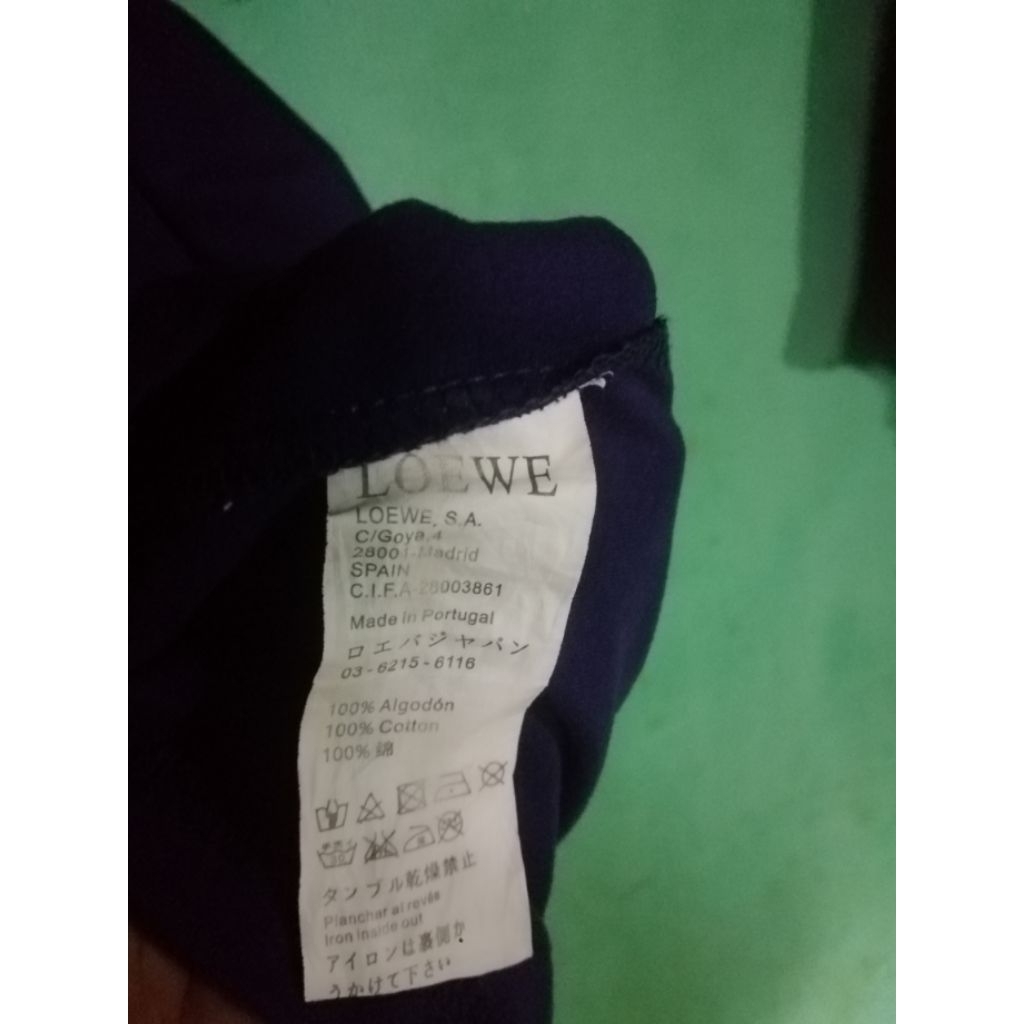 LOEWE
LOEWE, S.A.
C/Goya,4
28001-Madrid
SPAIN
C.I.F.A-28003861
Made in Portugal
ロエバジャパン
03-6215-6116
100% Algodón
100% Cotton
100% 綿
タンブル乾燥禁止
Planchar al revés
Iron inside out
アイロンは裏側か
うかけて下さい